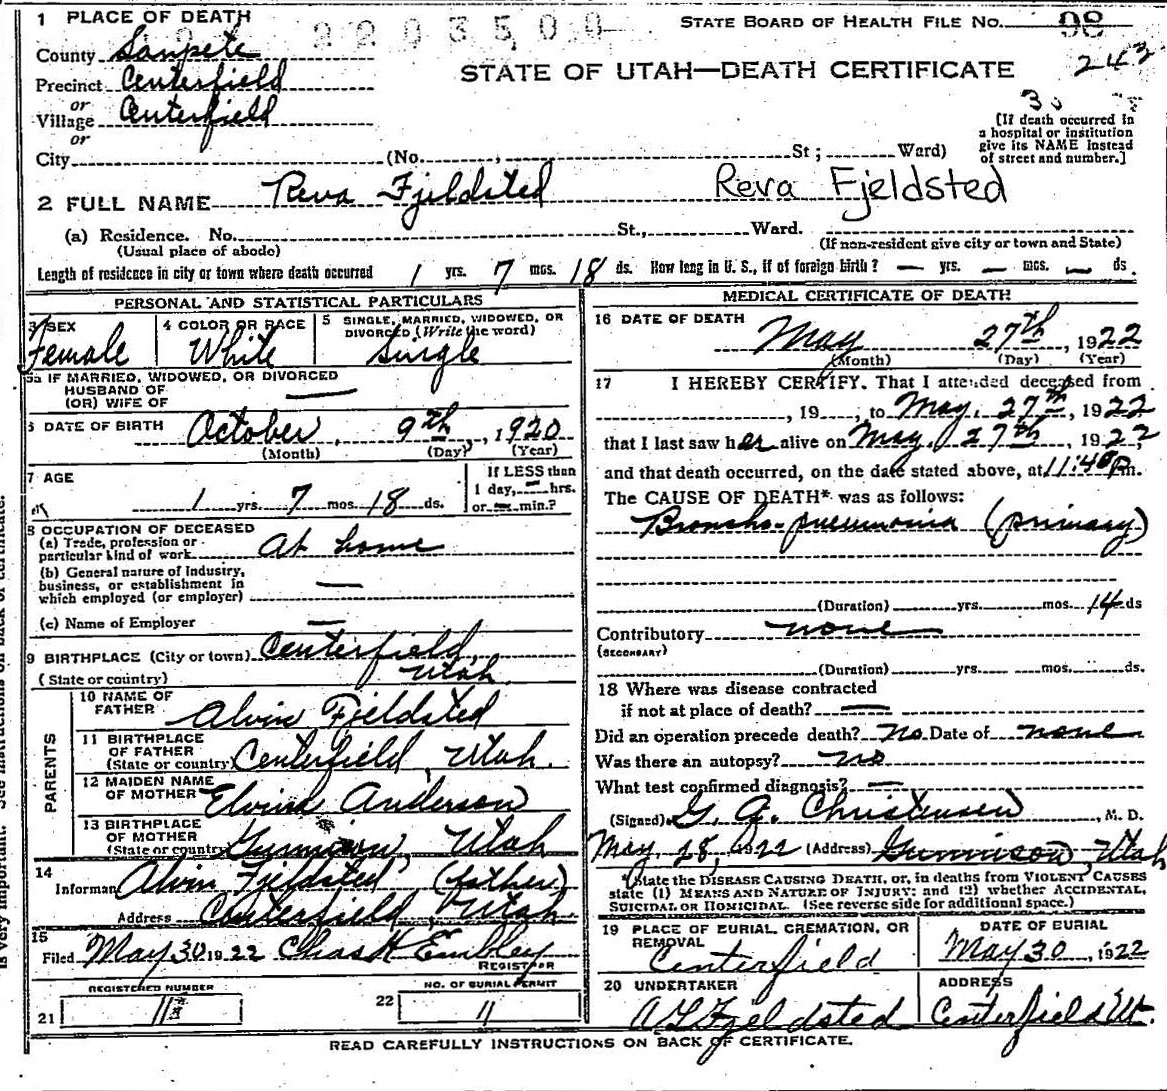 1 PLACE OF DEATH
STATE BOARD OF HEALTH FILE NO. 98
County Sanpete
243
STATE OF UTAH—DEATH CERTIFICATE
Precinct Centerfield
or
Village Centerfield
or
City (No. St; Ward)
[If death occurred in
a hospital or institution
give its NAME instead
of street and number.]
2 FULL NAME Reva Fjeldsted Reva Fjeldsted
(a) Residence. No. St., Ward.
(Usual place of abode) (If non-resident give city or town and State)
Length of residence in city or town where death occurred 1 yrs. 7 mos. 18 ds. How long in U. S., if of foreign birth? — yrs. — mos. — ds.
PERSONAL AND STATISTICAL PARTICULARS
3 SEX Female
4 COLOR OR RACE White
5 SINGLE, MARRIED, WIDOWED, OR
DIVORCED (Write the word)
Single
5a IF MARRIED, WIDOWED, OR DIVORCED
HUSBAND OF
(OR) WIFE OF —
6 DATE OF BIRTH October 9th, 1920
(Month) (Day) (Year)
7 AGE
1 yrs. 7 mos. 18 ds.
If LESS than
1 day, — hrs.
or — min.?
8 OCCUPATION OF DECEASED
(a) Trade, profession or
particular kind of work At home
(b) General nature of industry,
business, or establishment in
which employed (or employer) —
(c) Name of Employer —
9 BIRTHPLACE (City or town) Centerfield,
(State or country) Utah.
PARENTS
10 NAME OF
FATHER Alvin Fjeldsted
11 BIRTHPLACE
OF FATHER
(State or country) Centerfield, Utah.
12 MAIDEN NAME
OF MOTHER Elvina Anderson
13 BIRTHPLACE
OF MOTHER
(State or country) Gunnison, Utah
14
Informan Alvin Fjeldsted (father)
Address Centerfield, Utah.
15
Filed May 30 1922 Chas H Embley
REGISTRAR
REGISTERED NUMBER
21 11
NO. OF BURIAL PERMIT
22 11
MEDICAL CERTIFICATE OF DEATH
16 DATE OF DEATH
May 27th, 1922
(Month) (Day) (Year)
17 I HEREBY CERTIFY, That I attended deceased from
, 19 , to May. 27th, 1922
that I last saw her alive on May. 27th, 1922,
and that death occurred, on the date stated above, at 11:40 Pm.
The CAUSE OF DEATH* was as follows:
Broncho-pneumonia (primary)
(Duration) yrs. mos. 14 ds
Contributory none
(SECONDARY)
(Duration) yrs. mos. ds.
18 Where was disease contracted
if not at place of death? —
Did an operation precede death? No Date of none
Was there an autopsy? no
What test confirmed diagnosis? —
(Signed) G. A. Christensen, M. D.
May, 28, 1922 (Address) Gunnison, Utah
*State the DISEASE CAUSING DEATH, or, in deaths from VIOLENT CAUSES
state (1) MEANS AND NATURE OF INJURY; and (2) whether ACCIDENTAL,
SUICIDAL OR HOMICIDAL. (See reverse side for additional space.)
19 PLACE OF BURIAL, CREMATION, OR
REMOVAL
Centerfield
DATE OF BURIAL
May 30, 1922
20 UNDERTAKER
A L Fjeldsted
ADDRESS
Centerfield Ut.
READ CAREFULLY INSTRUCTIONS ON BACK OF CERTIFICATE.
is very important. See instructions on back of certificate.